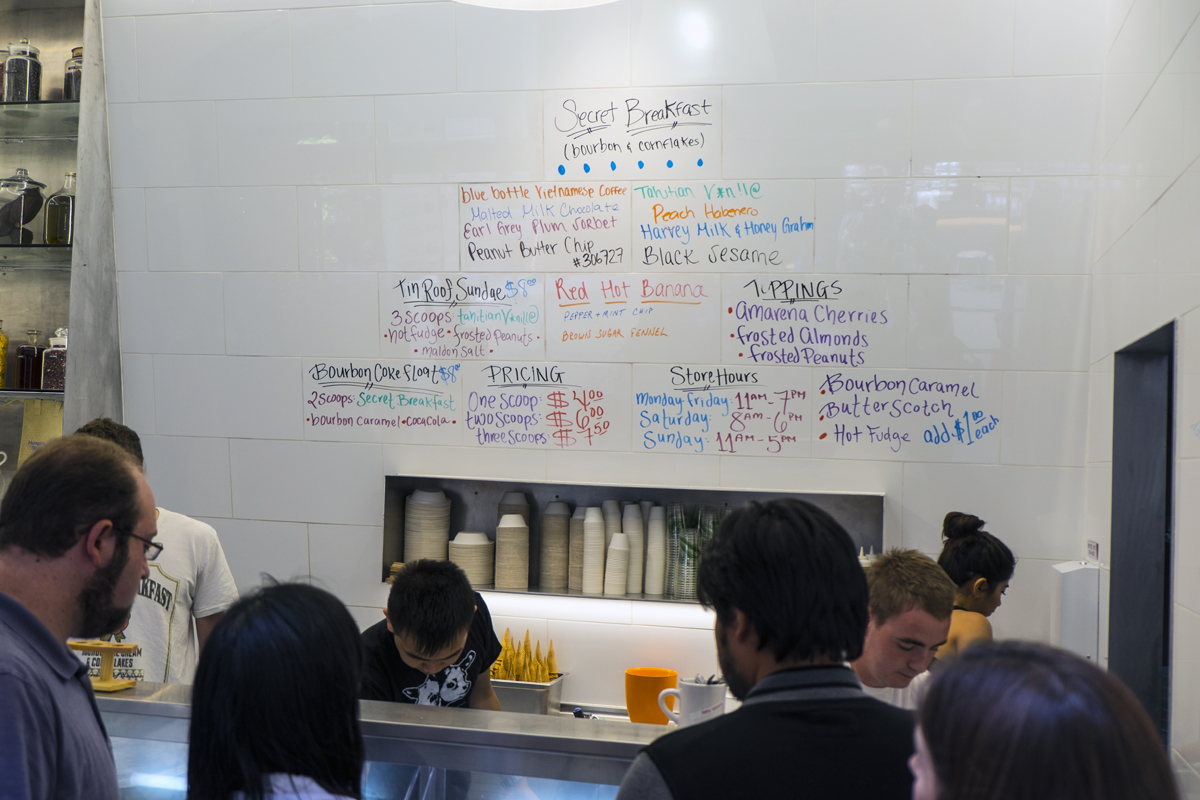 Secret Breakfast
(bourbon & cornflakes)
blue bottle Vietnamese Coffee
Malted Milk Chocolate
Earl Grey Plum Sorbet
Peanut Butter Chip
#306727
Tahitian V*n!!@
Peach Habenero
Harvey Milk & Honey Grahm
Black Sesame
Tin Roof Sundae $8.00
3 scoops tahitian V*n!!@
•hot fudge • frosted Peanuts •
• maldon Salt •
Red Hot Banana
PEPPER + MINT CHIP
BROWN SUGAR FENNEL
TOPPINGS
• Amarena Cherries
• frosted Almonds
• frosted Peanuts
Bourbon Coke Float $8.00
2 scoops: Secret Breakfast
•bourbon caramel •cocacola •
PRICING
One scoop: $4.00
two scoops: $6.00
three scoops: $7.50
Store Hours
Monday-Friday: 11AM-7PM
Saturday: 8AM-6PM
Sunday: 11AM-5PM
• Bourbon Caramel
• ButterScotch
• Hot Fudge add $1.00 each
& CORNFLAKES